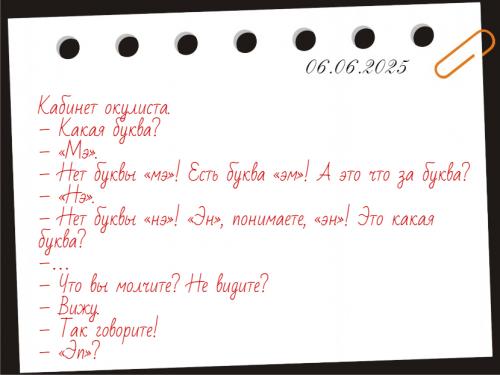 06.06.2025
Кабинет окулиста.
– Какая буква?
– «Мэ».
– Нет буквы «мэ»! Есть буква «эм»! А это что за буква?
– «Нэ».
– Нет буквы «нэ»! «Эн», понимаете, «эн»! Это какая
буква?
–...
– Что вы молчите? Не видите?
– Вижу.
– Так говорите!
– «Эп»?